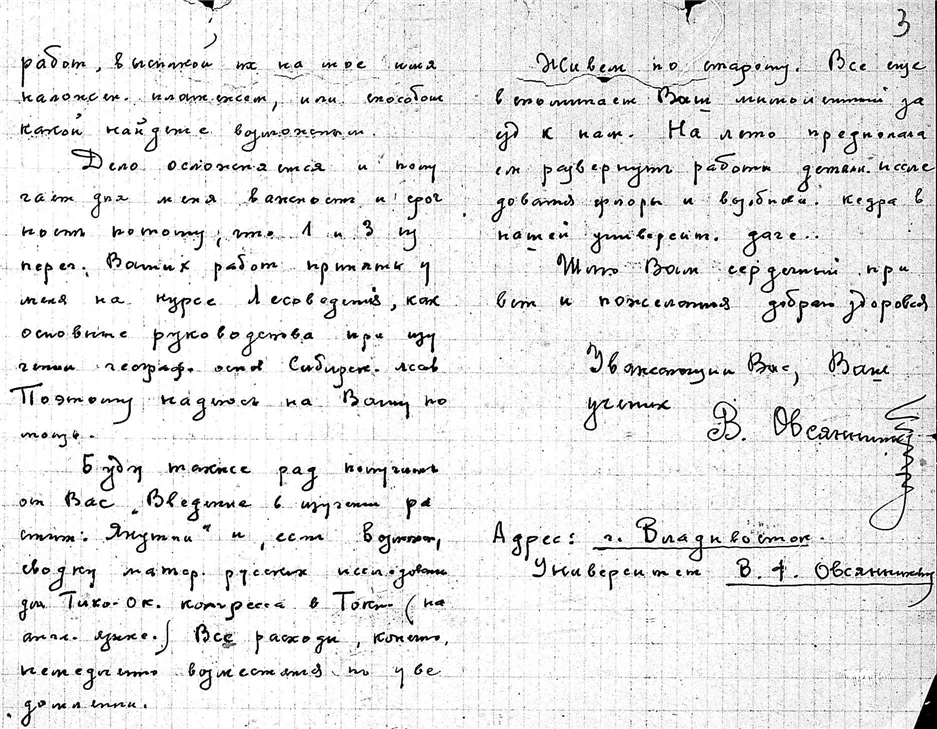 3
работ, высылкой их на мое имя
наложен. платежем, или способом
какой найдете возможным.
Дело осложняется и полу
чает для меня важность и сроч
ность потому, что 1 и 3 из
переч. Ваших работ приняты у
меня на курсе Лесоведения, как
основные руководства при изу
чении географ. основ Сибирск. лесов
Поэтому надеюсь на Вашу по
мощь.
Буду также рад получить
от Вас „Введение в изучение ра
стит. Якутии" и, если возможно,
сводку матер. русских исследований
для Тихо-Ок. конгресса в Токио (на
англ. языке.) Все расходы, конечно,
немедленно возместятся по уве
домлении.
Живем по старому. Все еще
вспоминаем Ваш мимолетный за
езд к нам. На лето предполага
ем развернуть работы детальн. иссле
дования флоры и возобнов. кедра в
нашей университ. даче..
Шлю Вам сердечный при
вет и пожелания доброго здоровья
Уважающий Вас, Ваш
ученик
В. Овсянников
Адрес: г. Владивосток.
Университет В. Ф. Овсянникову